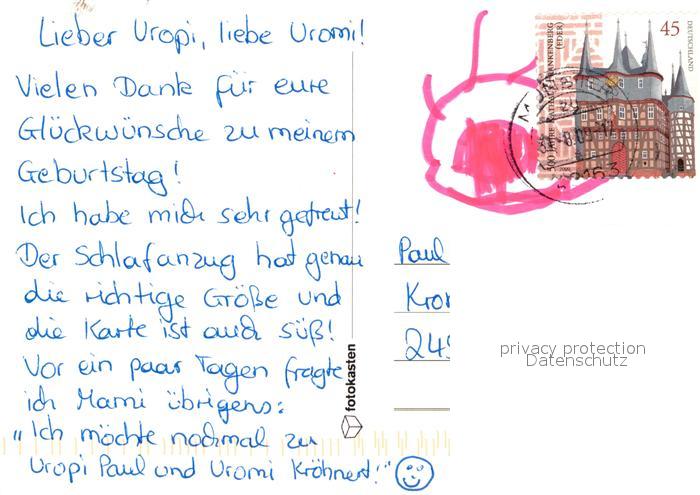 Lieber Uropi, liebe Uromi!
Vielen Dank für eure
Glückwünsche zu meinem
Geburtstag!
Ich habe mich sehr gefreut!
Der Schlafanzug hat genau
die richtige Größe und
die Karte ist auch süß!
Vor ein paar Tagen fragte
ich Mami übrigens:
"Ich möchte nochmal zu
Uropi Paul und Uromi Kröhnert!"
fotokasten
45
DEUTSCHLAND
FRANKENBERG
(EDER)
500 JAHRE
Paul
Kror
249
privacy protection
Datenschutz